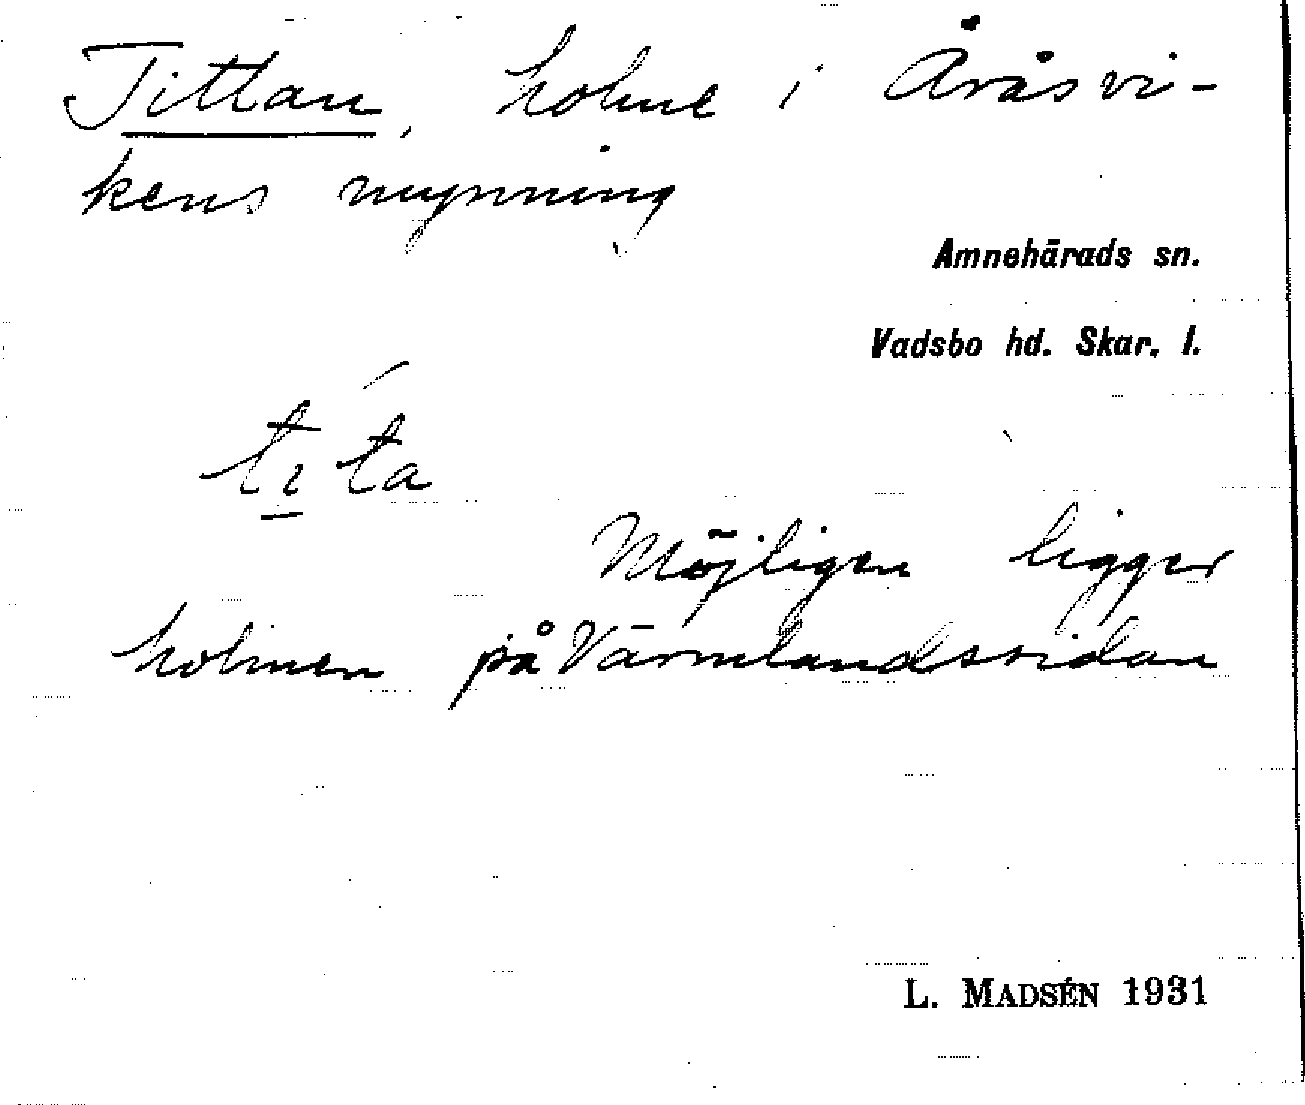 Tittan, holme i Åråsvi-
kens mynning
Amnehärads sn.
Vadsbo hd. Skar. l.
tı ta
Möjligen ligger
holmen på Värmlandssidan
L. MADSÉN 1931